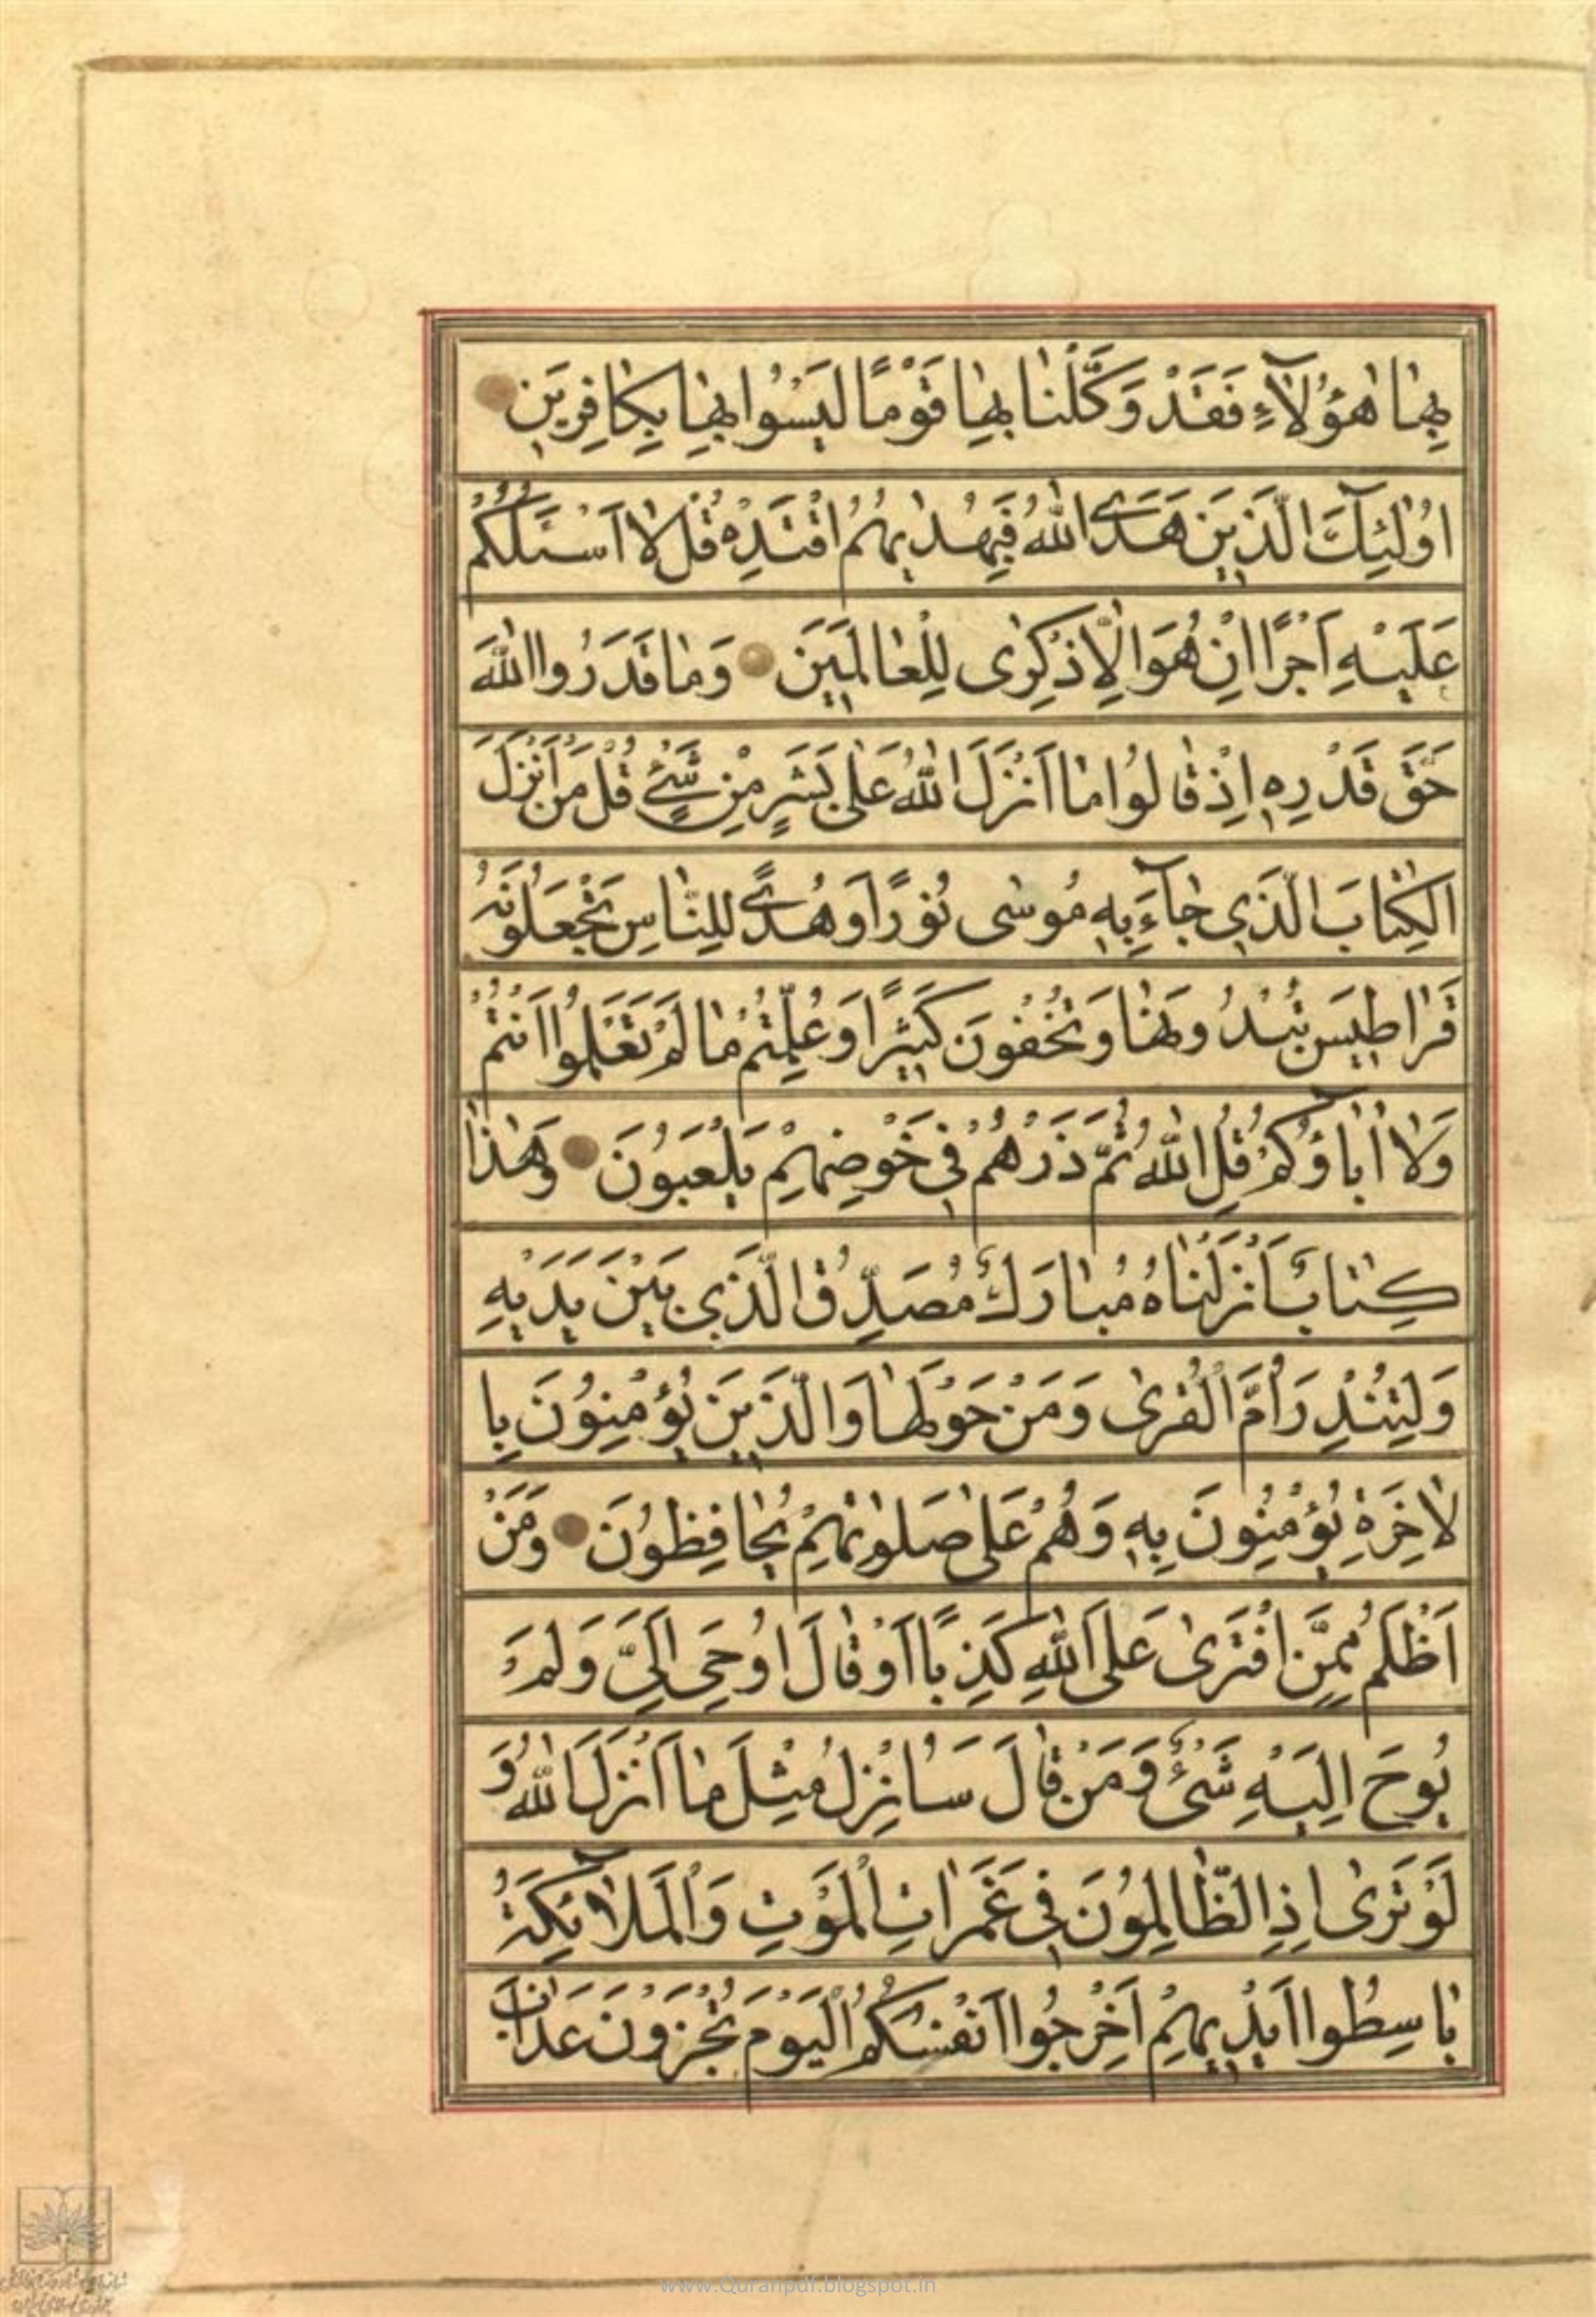 بِهٰا هٰؤُلٰآءِ فَقَدْ وَكَّلْنٰا بِهٰا قَوْمًا لَيْسُوا بِهٰا بِكٰافِرِينَ
اُولٰئِكَ الَّذِينَ هَدَى اللهُ فَبِهُدٰيهُمُ اقْتَدِهْ قُلْ لٰا اَسْئَلُكُمْ
عَلَيْهِ اَجْرًا اِنْ هُوَ اِلّٰا ذِكْرٰى لِلْعٰالَمِينَ وَمٰا قَدَرُوا اللهَ
حَقَّ قَدْرِهِ اِذْ قٰالُوا مٰا اَنْزَلَ اللهُ عَلٰى بَشَرٍ مِنْ شَىْءٍ قُلْ مَنْ اَنْزَلَ
الْكِتٰابَ الَّذِى جٰآءَ بِهِ مُوسٰى نُورًا وَهُدًى لِلنّٰاسِ تَجْعَلُونَهُ
قَرٰاطِيسَ تُبْدُونَهٰا وَتُخْفُونَ كَثِيرًا وَعُلِّمْتُمْ مٰا لَمْ تَعْلَمُوا اَنْتُمْ
وَلٰا اٰبٰاؤُكُمْ قُلِ اللهُ ثُمَّ ذَرْهُمْ فِى خَوْضِهِمْ يَلْعَبُونَ وَهٰذٰا
كِتٰابٌ اَنْزَلْنٰاهُ مُبٰارَكٌ مُصَدِّقُ الَّذِى بَيْنَ يَدَيْهِ
وَلِتُنْذِرَ اُمَّ الْقُرٰى وَمَنْ حَوْلَهٰا وَالَّذِينَ يُؤْمِنُونَ بِا
لْاٰخِرَةِ يُؤْمِنُونَ بِهِ وَهُمْ عَلٰى صَلوٰتِهِمْ يُحٰافِظُونَ وَمَنْ
اَظْلَمُ مِمَّنِ افْتَرٰى عَلَى اللهِ كَذِبًا اَوْ قٰالَ اُوحِىَ اِلَىَّ وَلَمْ
يُوحَ اِلَيْهِ شَىْءٌ وَمَنْ قٰالَ سَاُنْزِلُ مِثْلَ مٰا اَنْزَلَ اللهُ وَ
لَوْ تَرٰى اِذِ الظّٰالِمُونَ فِى غَمَرٰاتِ الْمَوْتِ وَالْمَلٰآئِكَةُ
بٰاسِطُوا اَيْدِيهِمْ اَخْرِجُوا اَنْفُسَكُمُ الْيَوْمَ تُجْزَوْنَ عَذٰابَ
www.Quranpdf.blogspot.in